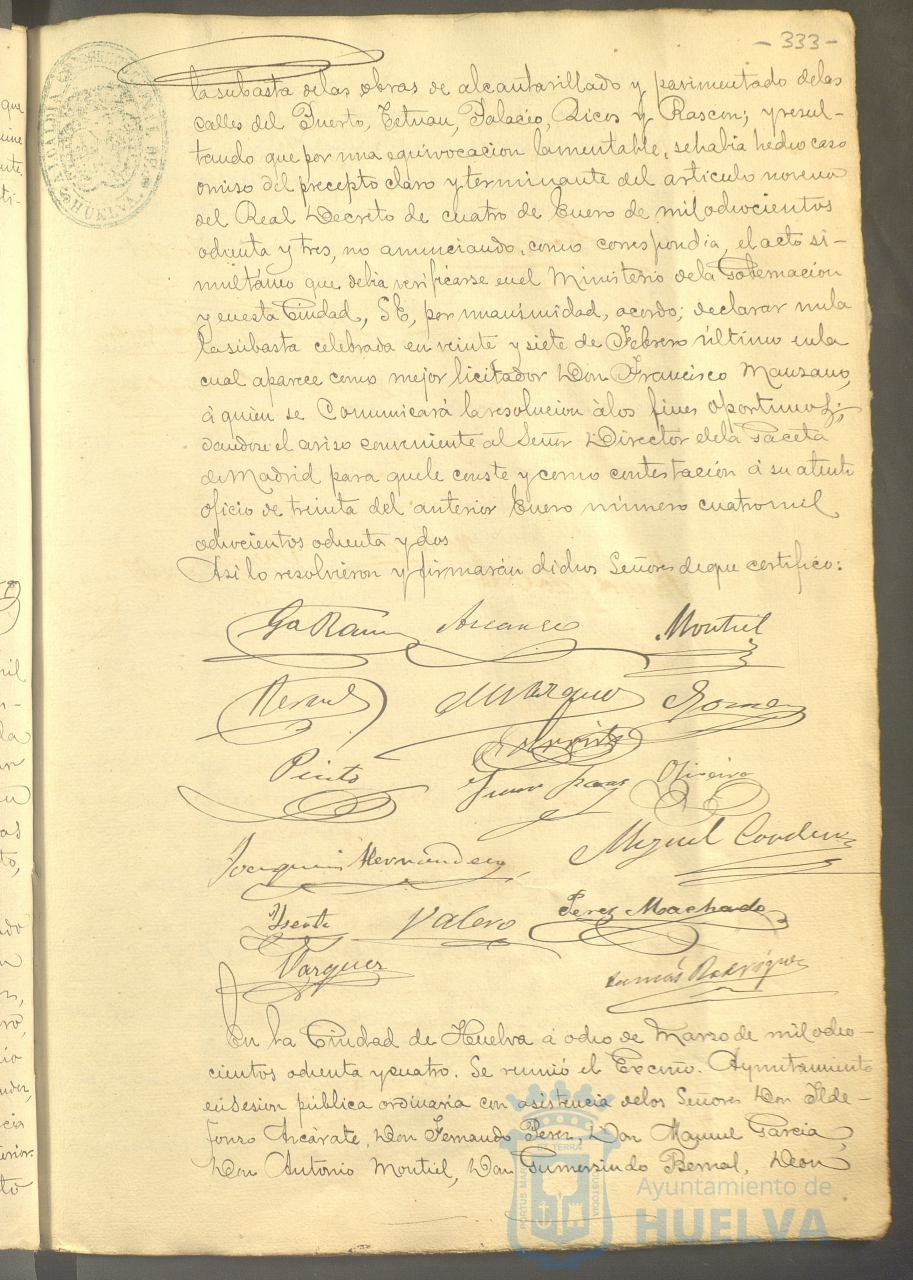 - 333 -
la subasta de las obras de alcantarillado y pavimentado de las
calles del Puerto, Tetuan, Palacio, Ricos y Rascon; y resul-
tando que por una equivocacion lamentable, se habia hecho caso
omiso del precepto claro y terminante del articulo noveno
del Real Decreto de cuatro de Enero de mil ochocientos
ochenta y tres, no anunciando, como correspondia, el acto si-
multáneo que debia verificarse en el Ministerio de la Gobernacion
y en esta Ciudad, SE, por unanimidad, acordo; declarar nula
la subasta celebrada en veinte y siete de Febrero último en la
cual aparece como mejor licitador Don Francisco Manzano,
á quien se Comunicará la resolucion á los fines oportunos;
dandose el aviso conveniente al Señor Director de la Gaceta
de Madrid para que le conste y como contestación á su atento
oficio de treinta del anterior Enero número cuatro mil
ochocientos ochenta y dos
Asi lo resolvieron y firmarán dichos Señores de que certifico:
Montiel
Bernal Marquez
Pinto
Joaquin Hernandez Miguel
Valero Perez Machado
Vazquez Tomás Rodriguez
En la Ciudad de Huelva á ocho de Marzo de mil ocho-
cientos ochenta y cuatro. Se reunió el Excmo. Ayuntamiento
en Sesion pública ordinaria con asistencia de los Señores Don Ilde-
fonzo Arcárate, Don Fernando Perez, Don Manuel Garcia,
Don Antonio Montiel, Don Gumersindo Bernal, Deon
HUELVA
PORTUS MARIS
ET TERRÆ
CUSTODIA
Ayuntamiento de
HUELVA